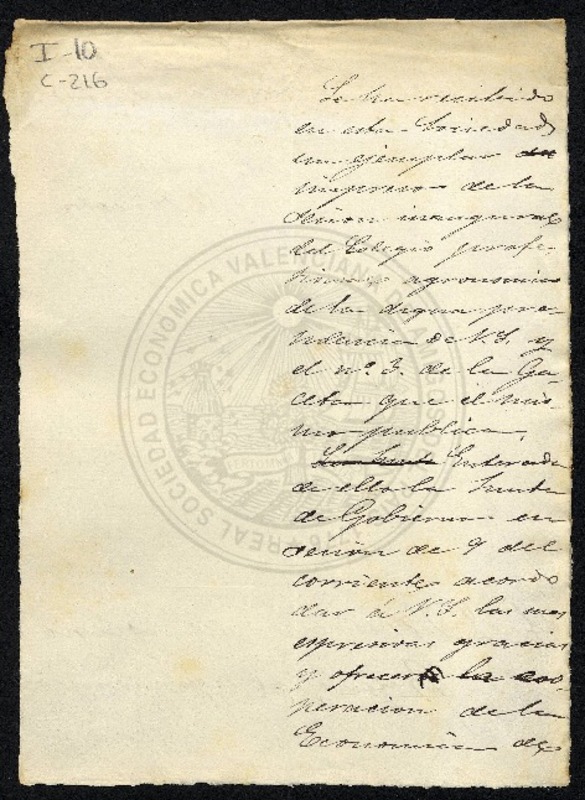 I-10
C-216
Se ha recibido
en esta Sociedad
un ejemplar
impreso de la
sesion inaugural
del Colegio profe-
sional agronomico
de la digna pre-
sidencia de V.S. y
el nº 3. de la Ga-
ceta que el mis-
mo publica.
La Junta Enterada
de ello la Junta
de Gobierno en
sesion de 9 del
corriente acordó
dar á V.S. las mas
espresivas gracias
y ofrecer la coo-
peracion de la
Económica de
REAL SOCIEDAD ECONÓMICA VALENCIANA AMIGOS 1776